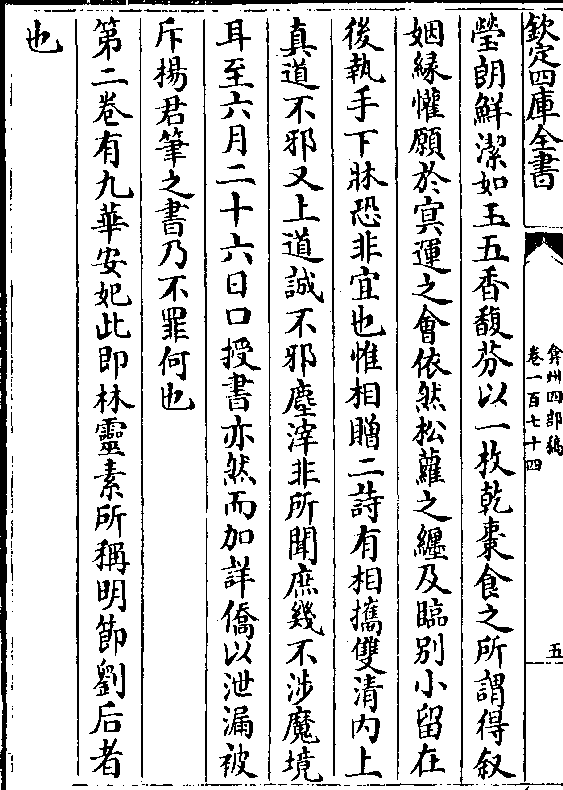 欽定四庫全書
弇州四部稿
卷一百七十四
五
瑩朗鮮潔如玉五香馥芬以一枚乾棗食之所謂得叙
姻緣懽願於冥運之會依然松蘿之纏及臨別小留在
後執手下牀恐非宜也惟相贈二詩有相攜雙清内上
真道不邪又上道誠不邪塵滓非所聞庶幾不涉魔境
耳至六月二十六日口授書亦然而加詳僑以泄漏被
斥揚君筆之書乃不罪何也
第二卷有九華安妃此即林靈素所稱明節劉后者
也